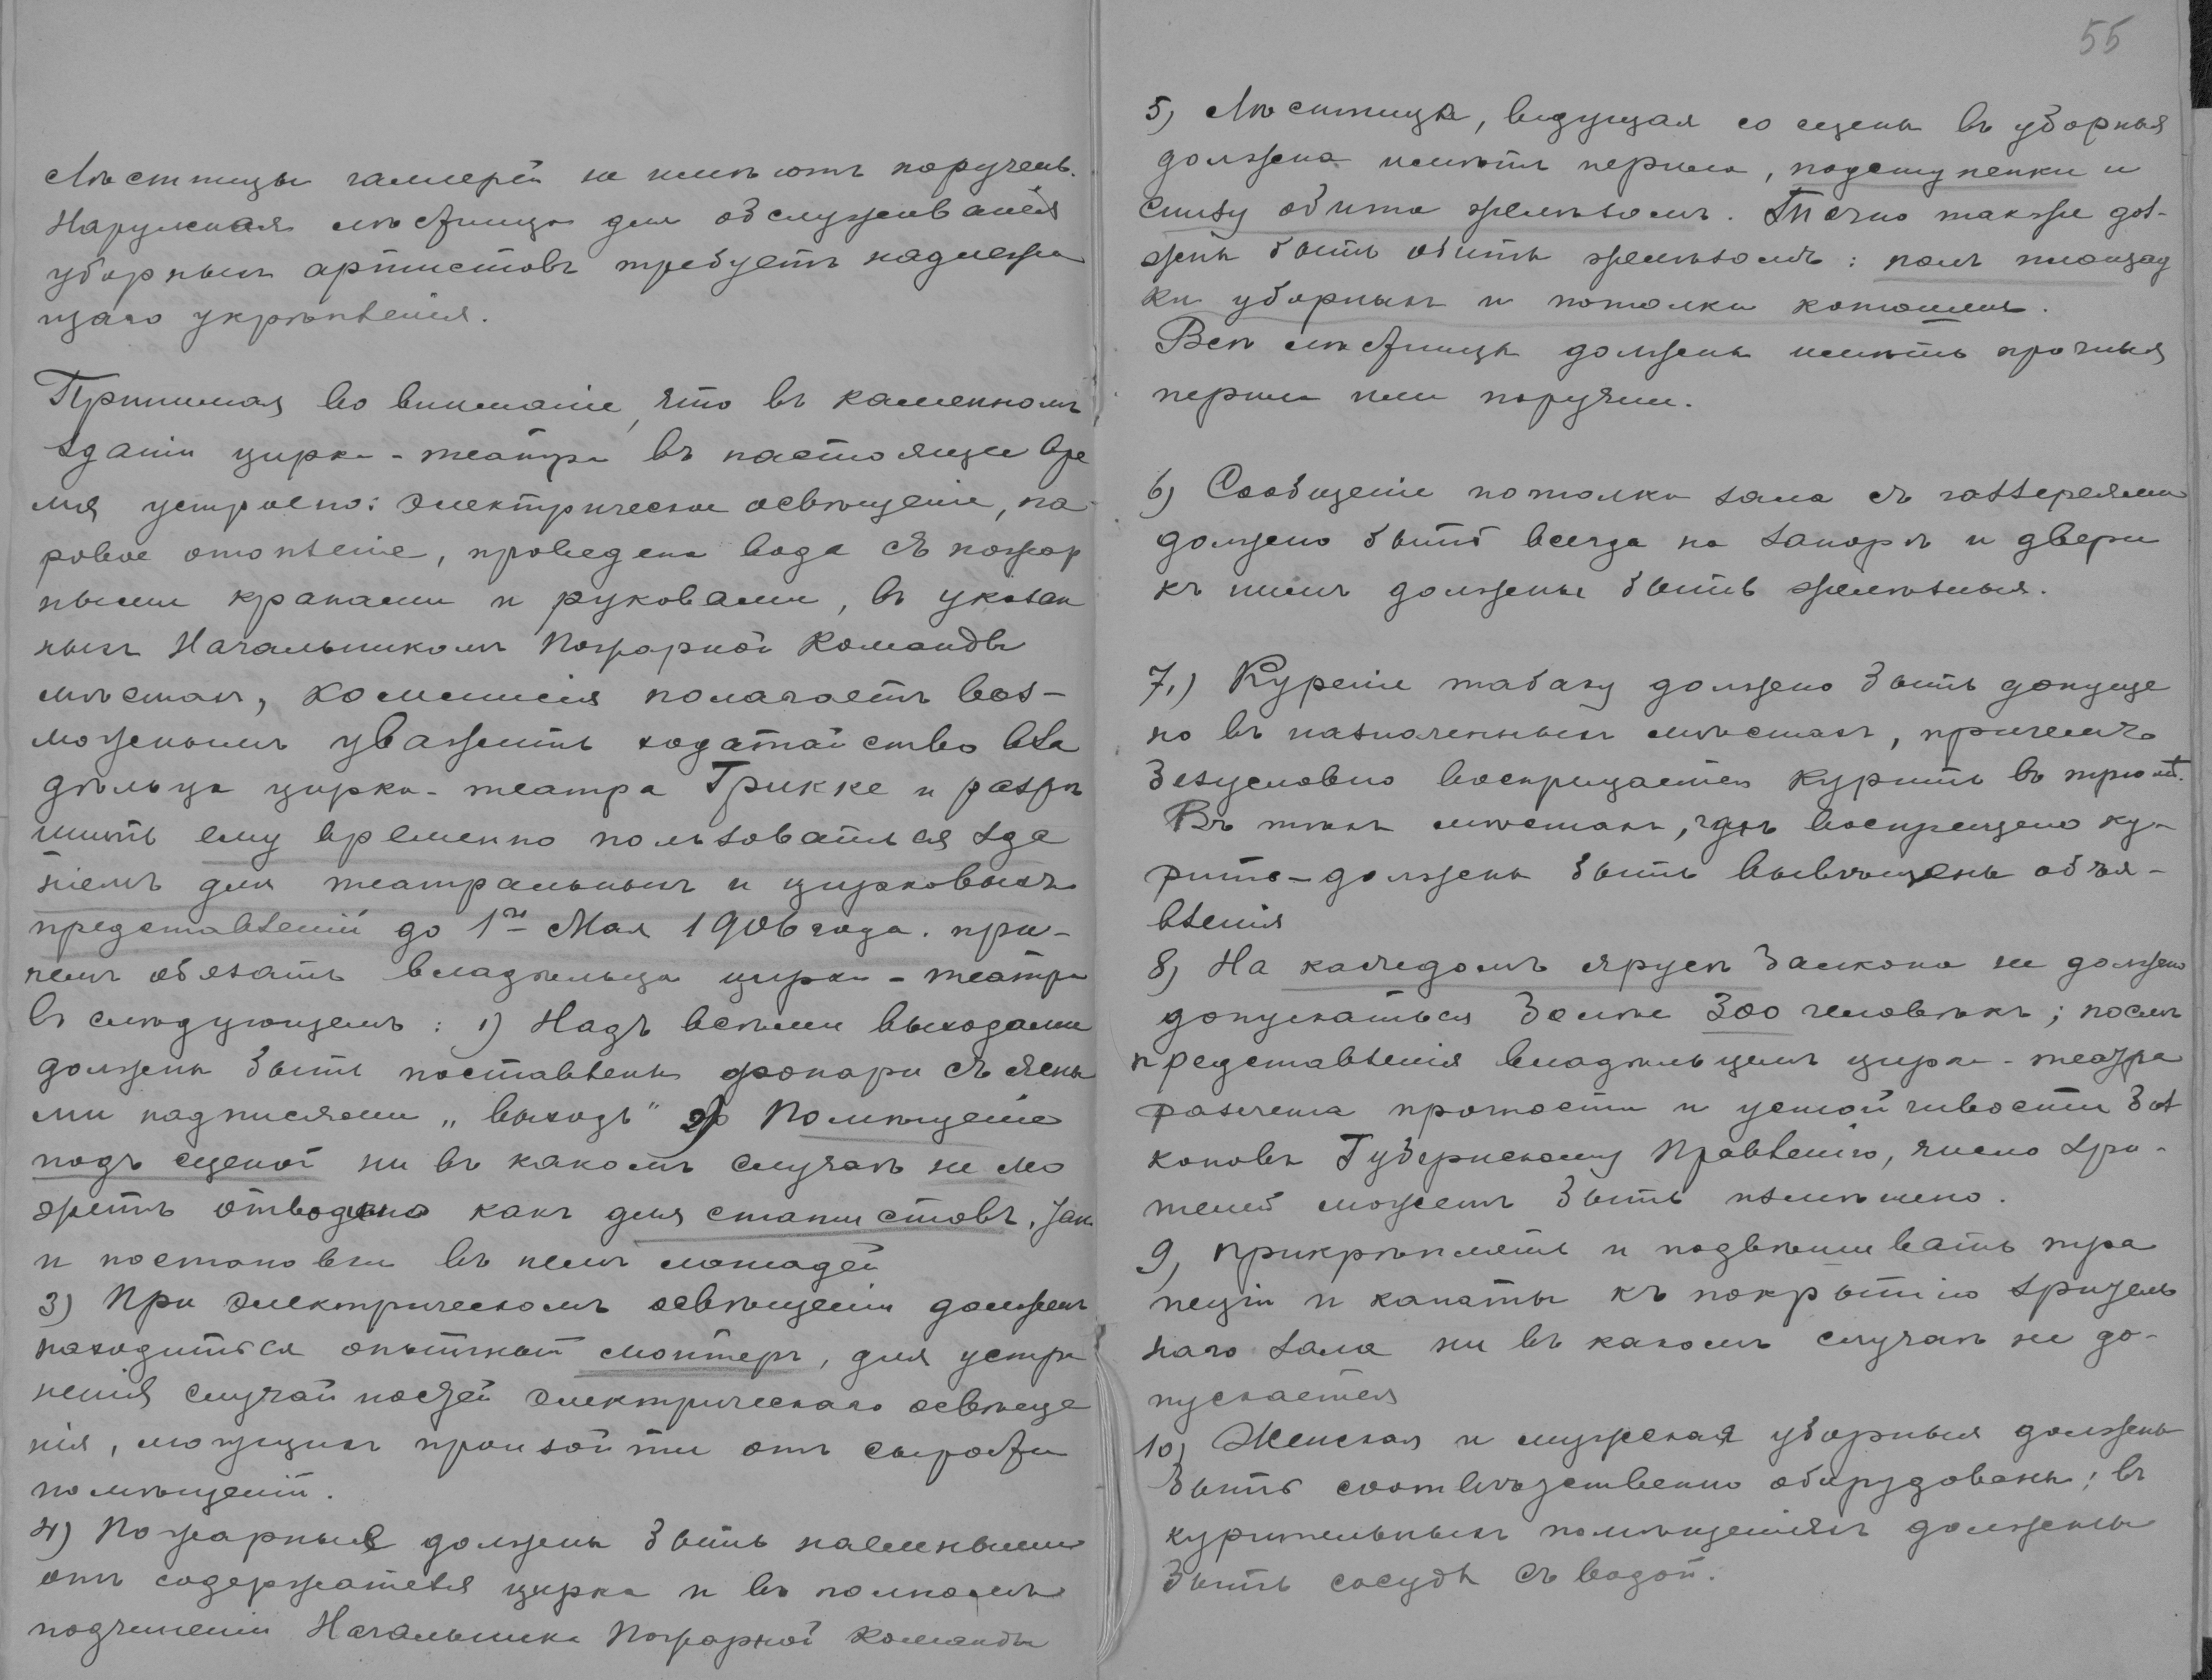 Лѣстницы галлерей не имѣютъ поручень.
Наружная лѣстница для обслуживанія
уборныхъ артистовъ требуетъ надлежа
щаго укрѣпленія.
Принимая во вниманіе, что въ каменномъ
зданіи цирка-театра въ настоящее вре
мя устроено: электрическое освѣщеніе, па-
ровое отопленіе, проведена вода съ пожар
ными кранами и рукавами, въ указан
ныхъ Начальникомъ Пожарной Команды
мѣстахъ, коммиссія полагаетъ воз-
можнымъ уважить ходатайство вла
дѣльца цирка-театра Грикке и разрѣ
шить ему временно пользоваться зда
ніемъ для театральныхъ и цирковыхъ
представленій до 1го Мая 1906 года. при-
чемъ обязать владѣльца цирка-театра
въ слѣдующемъ: 1) Надъ всѣми выходами
должны быть поставлены фонари съ ясны
ми надписями „выходъ" 2) Помѣщеніе
подъ сценой ни въ какомъ случаѣ не мо
жетъ отводено какъ для статистовъ, так
и постановки въ немъ лошадей
3) При электрическомъ освѣщеніи долженъ
находиться опытный монтеръ, для устра
ненія случайностей электрическаго освѣще
нія, могущихъ произойти отъ сырости
помѣщеній.
4) Пожарные должны быть наемными
отъ содержателя цирка и въ полномъ
подчиненіи Начальника Пожарной Команды
55
5) Лѣстница, ведущая со сцены въ уборныя
должна имѣть перила, подступенки и
снизу обита желѣзомъ. Точно также дол-
жны быть обиты желѣзомъ: полъ площад
ки уборныхъ и потолки конюшни.
Всѣ лѣстницы должны имѣть прочныя
перила или поручни.
6) Сообщеніе потолка зала съ галлереями
должно быть всегда на запорѣ и двери
къ нимъ должны быть желѣзныя.
7.) Куреніе табаку должно быть допуще
но въ назначенныхъ мѣстахъ, причемъ
безусловно воспрещается курить въ трюмѣ.
Въ тѣхъ мѣстахъ, гдѣ воспрещено ку-
рить-должны быть вывѣшены объя-
вленія
8) На каждомъ ярусѣ балкона не должно
допускаться болѣе 300 человѣкъ; послѣ
представленія владѣльцемъ цирка-театра
разсчета прочности и устойчивости бал
коновъ Губернскому Правленію, число зри-
телей можетъ быть измѣнено.
9, Прикрѣплять и подвѣшивать тра
пеціи и канаты къ покрытію зритель
наго зала ни въ какомъ случаѣ не до-
пускается
10) Женская и мужская уборныя должны
быть соотвѣтственно оборудованы; въ
курительныхъ помѣщеніяхъ должны
быть сосуды съ водой.